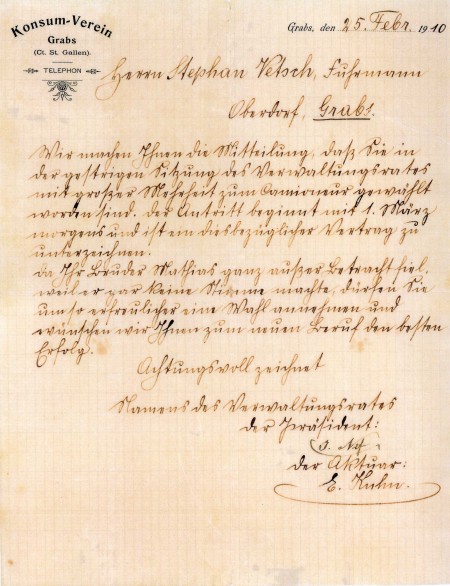 Konsum-Verein
Grabs
(Ct. St. Gallen).
TELEPHON
Grabs, den 25. Febr. 1910
Herrn Stephan Vetsch, Fuhrmann
Oberdorf, Grabs.
Wir machen Ihnen die Mitteilung, daß Sie in
der gestrigen Sitzung des Verwaltungsrates
mit großer Mehrheit zum Camioneur gewählt
worden sind. Der Antritt beginnt mit 1. März
morgens und ist ein diesbezüglicher Vertrag zu
unterzeichnen.
Da Ihr Bruder Mathias ganz außer Betracht fiel,
weil er gar keine Stimme machte, dürfen Sie
um so erfreulicher eine Wahl annehmen und
wünschen wir Ihnen zum neuen Beruf den besten
Erfolg.
Achtungsvoll zeichnet
Namens des Verwaltungsrates
der Präsident:
der Aktuar:
E. Kuhn.